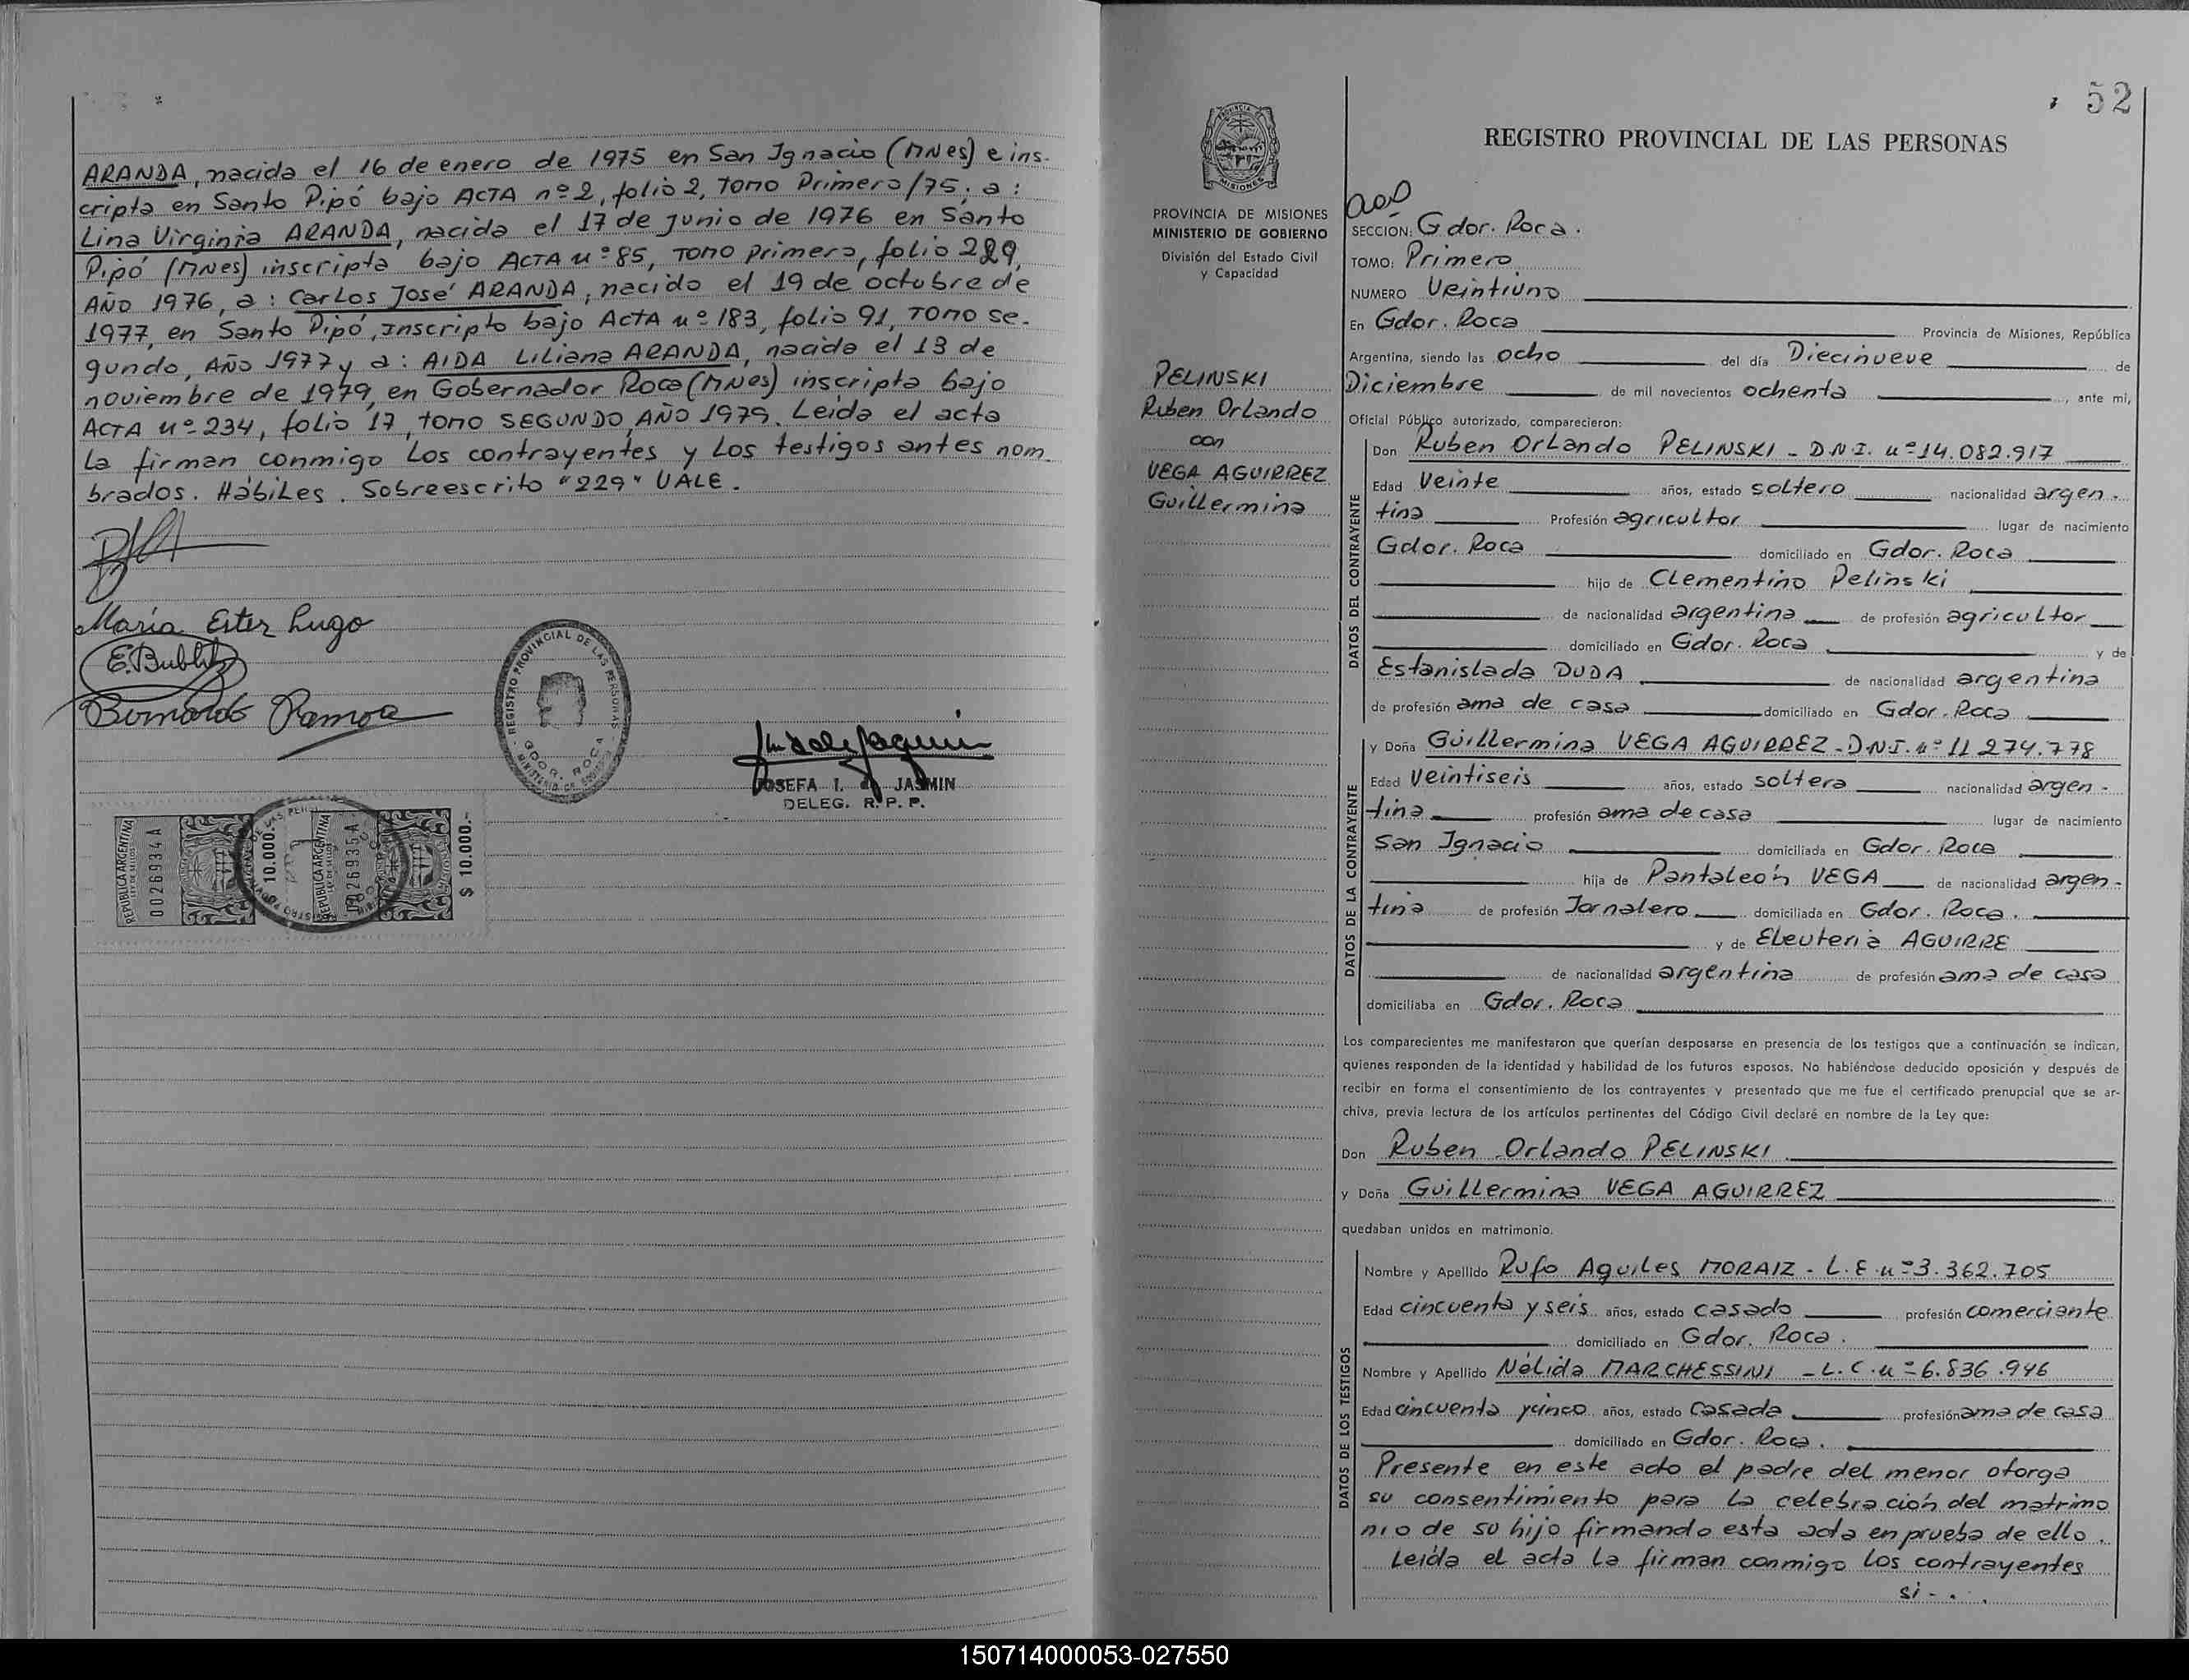 ARANDA, nacida el 16 de enero de 1975 en San Ignacio (MNes) e ins-
cripta en Santo Pipó bajo ACTA nº 2, folio 2, TOMO Primero/75; a:
Lina Virginia ARANDA, nacida el 17 de junio de 1976 en Santo
Pipó (MNes) inscripta bajo ACTA nº 85, TOMO Primero, folio 229,
AÑO 1976, a: Carlos José ARANDA, nacido el 19 de octubre de
1977, en Santo Pipó, inscripto bajo ACTA nº 183, folio 91, TOMO se-
gundo, AÑO 1977 y a: AIDA Liliana ARANDA, nacida el 13 de
noviembre de 1979, en Gobernador Roca (MNes) inscripta bajo
ACTA nº 234, folio 17, tomo SEGUNDO, AÑO 1979. Leida el acta
la firman conmigo los contrayentes y los testigos antes nom-
brados. Hábiles. Sobreescrito "229" VALE.
María Ester Lugo
E. Bublitz
Bernardo Ramoa
REGISTRO PROVINCIAL DE LAS PERSONAS
GDOR. ROCA
JOSEFA I. de JASMIN
DELEG. R. P. P.
REPUBLICA ARGENTINA
0026934A
10.000.-
REPUBLICA ARGENTINA
0026935A
$ 10.000.-
52
PROVINCIA DE MISIONES
MINISTERIO DE GOBIERNO
División del Estado Civil
y Capacidad
PELINSKI
Ruben Orlando
con
VEGA AGUIRREZ
Guillermina
REGISTRO PROVINCIAL DE LAS PERSONAS
SECCION: Gdor. Roca.
TOMO: Primero
NUMERO Veintiuno
En Gdor. Roca Provincia de Misiones, República
Argentina, siendo las ocho del día Diecinueve de
Diciembre de mil novecientos ochenta, ante mi,
Oficial Público autorizado, comparecieron:
DATOS DEL CONTRAYENTE
Don Ruben Orlando PELINSKI - D.N.I. nº 14.082.917
Edad Veinte años, estado soltero nacionalidad argen-
tina Profesión agricultor lugar de nacimiento
Gdor. Roca domiciliado en Gdor. Roca
hijo de Clementino Pelinski
de nacionalidad argentina de profesión agricultor
domiciliado en Gdor. Roca y de
Estanislada DUDA de nacionalidad argentina
de profesión ama de casa domiciliado en Gdor. Roca
DATOS DE LA CONTRAYENTE
y Doña Guillermina VEGA AGUIRREZ - D.N.I. nº 11.274.778
Edad Veintiseis años, estado soltera nacionalidad argen-
tina profesión ama de casa lugar de nacimiento
San Ignacio domiciliada en Gdor. Roca
hija de Pantaleón VEGA de nacionalidad argen-
tina de profesión Jornalero domiciliada en Gdor. Roca.
y de Eleuteria AGUIRRE
de nacionalidad argentina de profesión ama de casa
domiciliaba en Gdor. Roca
Los comparecientes me manifestaron que querían desposarse en presencia de los testigos que a continuación se indican,
quienes responden de la identidad y habilidad de los futuros esposos. No habiéndose deducido oposición y después de
recibir en forma el consentimiento de los contrayentes y presentado que me fue el certificado prenupcial que se ar-
chiva, previa lectura de los artículos pertinentes del Código Civil declaré en nombre de la Ley que:
Don Ruben Orlando PELINSKI
y Doña Guillermina VEGA AGUIRREZ
quedaban unidos en matrimonio.
DATOS DE LOS TESTIGOS
Nombre y Apellido Rufo Aquiles MORAIZ - L.E. nº 3.362.705
Edad cincuenta y seis años, estado casado profesión comerciante
domiciliado en Gdor. Roca.
Nombre y Apellido Nélida MARCHESSINI - L.C. nº 6.836.946
Edad cincuenta y cinco años, estado Casada profesión ama de casa
domiciliado en Gdor. Roca.
Presente en este acto el padre del menor otorga
su consentimiento para la celebración del matrimo
nio de su hijo firmando esta acta en prueba de ello.
Leida el acta la firman conmigo los contrayentes
si-.
150714000053-027550